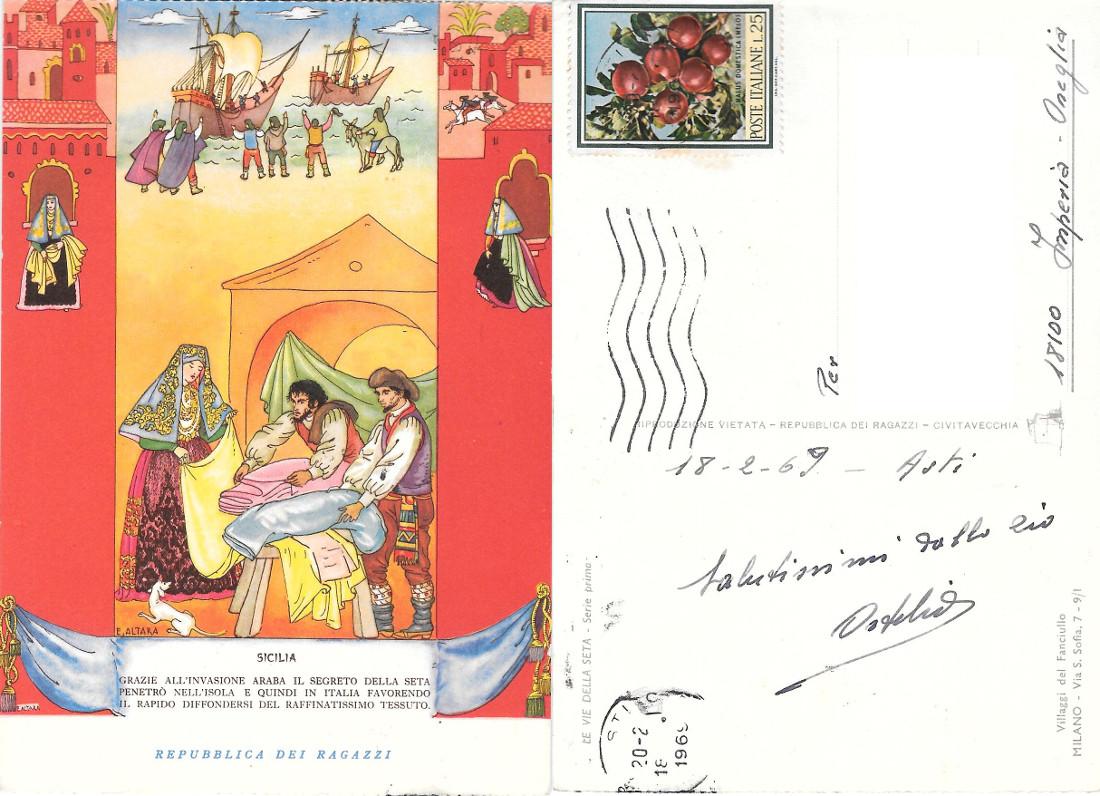 E. ALTARA
SICILIA
GRAZIE ALL'INVASIONE ARABA IL SEGRETO DELLA SETA
PENETRÒ NELL'ISOLA E QUINDI IN ITALIA FAVORENDO
IL RAPIDO DIFFONDERSI DEL RAFFINATISSIMO TESSUTO.
E. ALTARA
REPUBBLICA DEI RAGAZZI
MALUS DOMESTICA (MELO)
POSTE ITALIANE L. 25
Per
18100 Imperia - Oneglia
RIPRODUZIONE VIETATA - REPUBBLICA DEI RAGAZZI - CIVITAVECCHIA
18-2-69 - Asti
Salutissimi dallo zio
LE VIE DELLA SETA - Serie prima
STI
20-2
18
1969
Villaggi del Fanciullo
MILANO - Via S. Sofia, 7 - 9/1